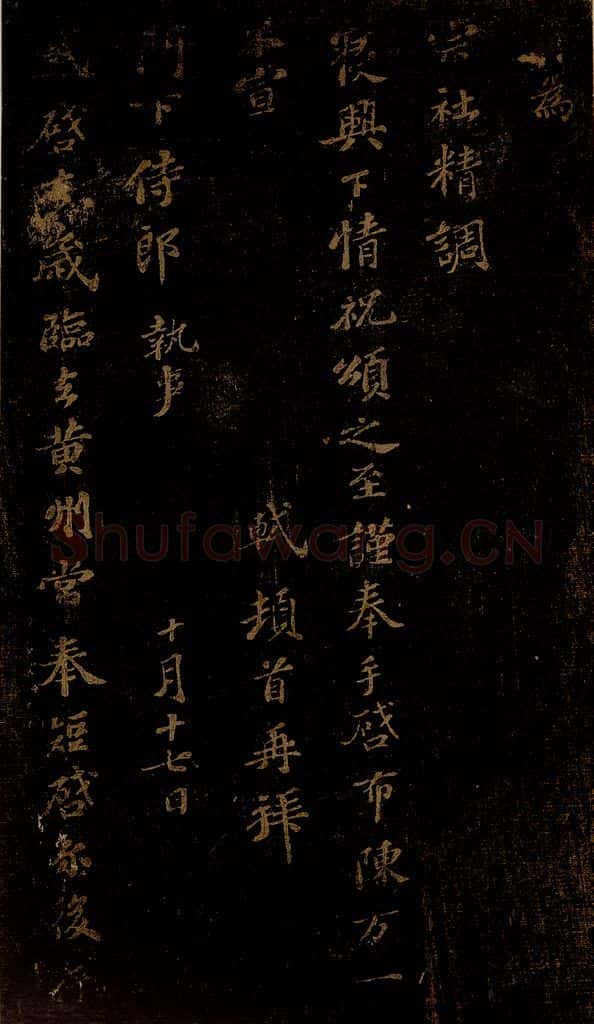 為
宗社精調
寢興下情祝頌之至謹奉手啓布陳万一
不宣 軾頓首再拜
門下侍郎 執事 十月十七日
軾啓去歲臨去黃州嘗奉短啓尔後行
Shufawang.CN